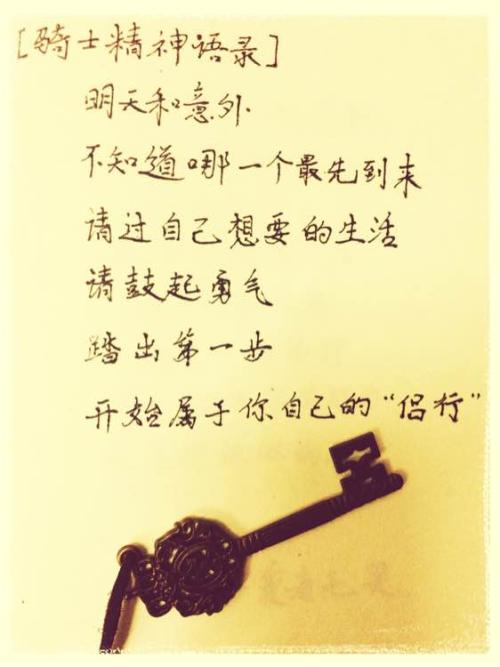 [骑士精神语录]
明天和意外
不知道哪一个最先到来
请过自己想要的生活
请鼓起勇气
踏出第一步
开始属于你自己的“侣行”